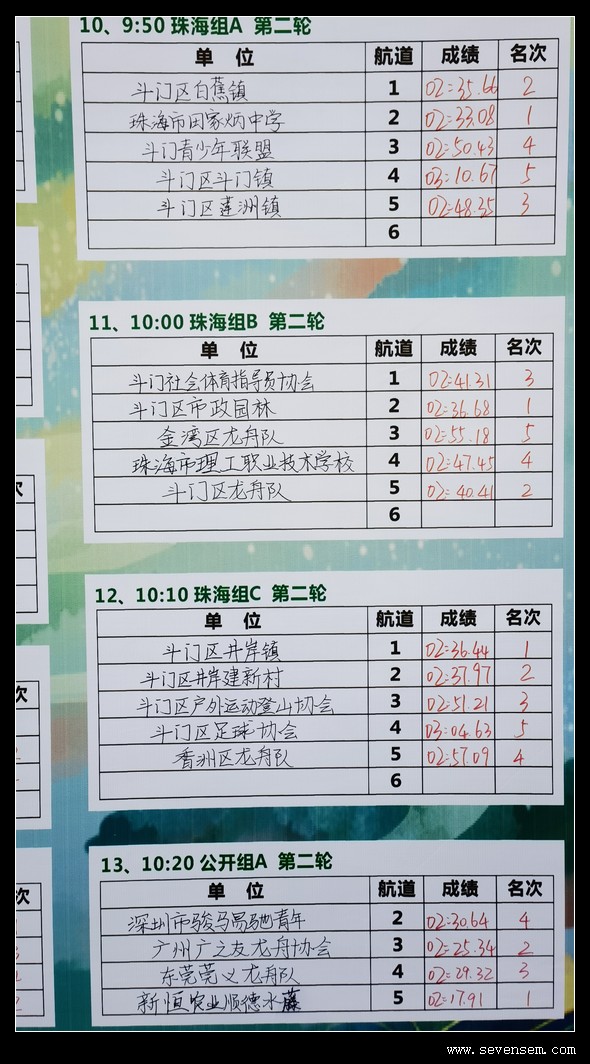 10、9:50 珠海组A 第二轮
单 位 航道 成绩 名次
斗门区白蕉镇 1 02:35.66 2
珠海市田家炳中学 2 02:33.08 1
斗门青少年联盟 3 02:50.43 4
斗门区斗门镇 4 03:10.67 5
斗门区莲洲镇 5 02:48.35 3
6
11、10:00 珠海组B 第二轮
单 位 航道 成绩 名次
斗门社会体育指导员协会 1 02:41.31 3
斗门区市政园林 2 02:36.68 1
金湾区龙舟队 3 02:55.18 5
珠海市理工职业技术学校 4 02:47.45 4
斗门区龙舟队 5 02:40.41 2
6
12、10:10 珠海组C 第二轮
单 位 航道 成绩 名次
斗门区井岸镇 1 02:36.44 1
斗门区井岸建新村 2 02:37.97 2
斗门区户外运动登山协会 3 02:51.21 3
斗门区足球协会 4 03:04.63 5
香洲区龙舟队 5 02:57.09 4
6
13、10:20 公开组A 第二轮
单 位 航道 成绩 名次
深圳市骏马易驰青年 2 02:30.64 4
广州广之友龙舟协会 3 02:25.34 2
东莞莞义龙舟队 4 02:29.32 3
新恒农业顺德水藤 5 02:17.91 1
www.sevensem.com